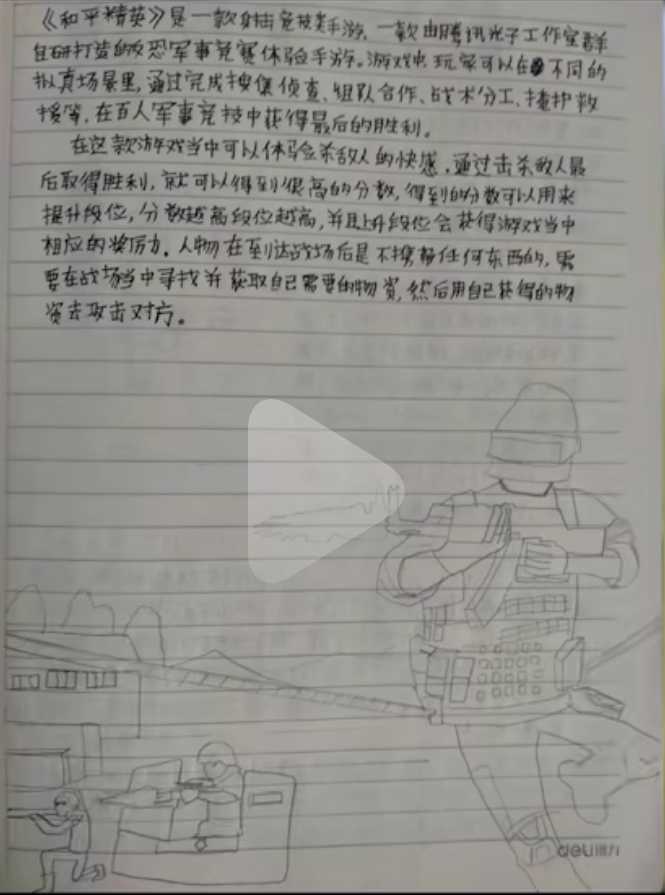 《和平精英》是一款射击竞技类手游,一款由腾讯光子工作室群
自研打造的反恐军事竞赛体验手游。游戏中,玩家可以在不同的
拟真场景里,通过完成搜集侦查、组队合作、战术分工、掩护救
援等,在百人军事竞技中获得最后的胜利。
在这款游戏当中可以体验杀敌人的快感,通过击杀敌人最
后取得胜利,就可以得到很高的分数,得到的分数可以用来
提升段位,分数越高段位越高,并且上升段位会获得游戏当中
相应的奖励。人物在到达战场后是不携带任何东西的,需
要在战场当中寻找并获取自己需要的物资,然后用自己获得的物
资去攻击对方。
deli